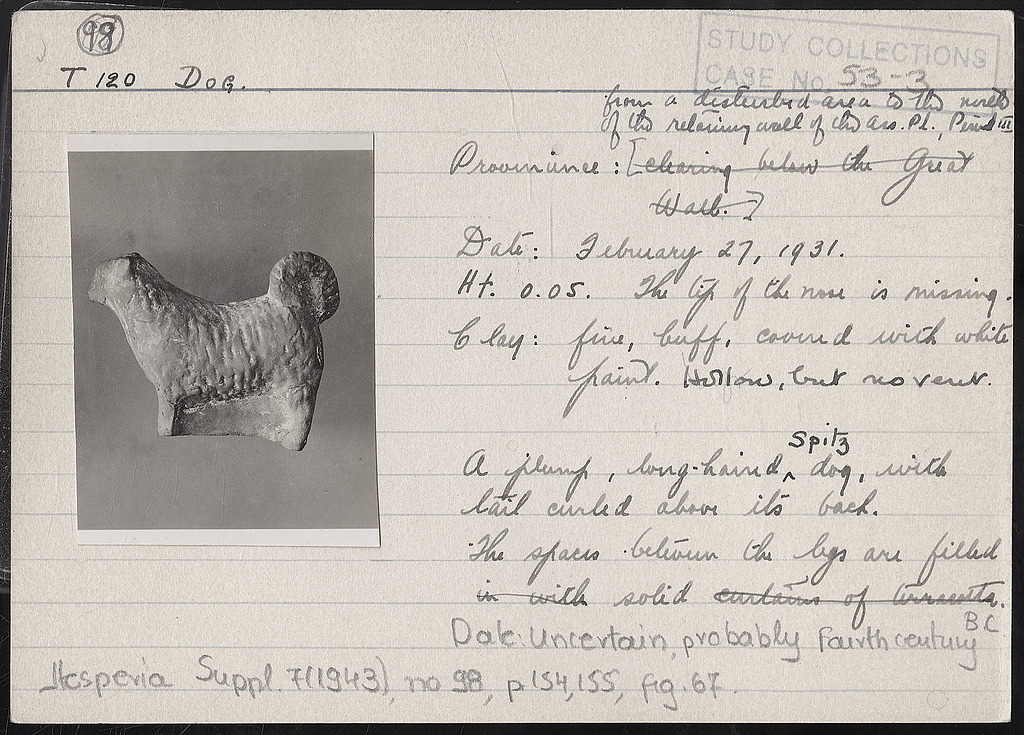 98
STUDY COLLECTIONS
CASE No. 53-3
T 120 DOG.
from a disturbed area to the north
of the retaining wall of the Ass. Pl., Period III
Provinience : [clearing below the Great
Wall.]
Date: February 27, 1931.
Ht. 0.05. The tip of the nose is missing.
Clay: fine, buff, covered with white
paint. Hollow, but no vent.
Spitz
A plump, long-haired ^ dog, with
tail curled above its back.
The spaces between the legs are filled
in with solid curtains of terracotta.
Date: Uncertain, probably Fourth century
BC
Hesperia Suppl. 7(1943), no 98, p 154,155, fig. 67.